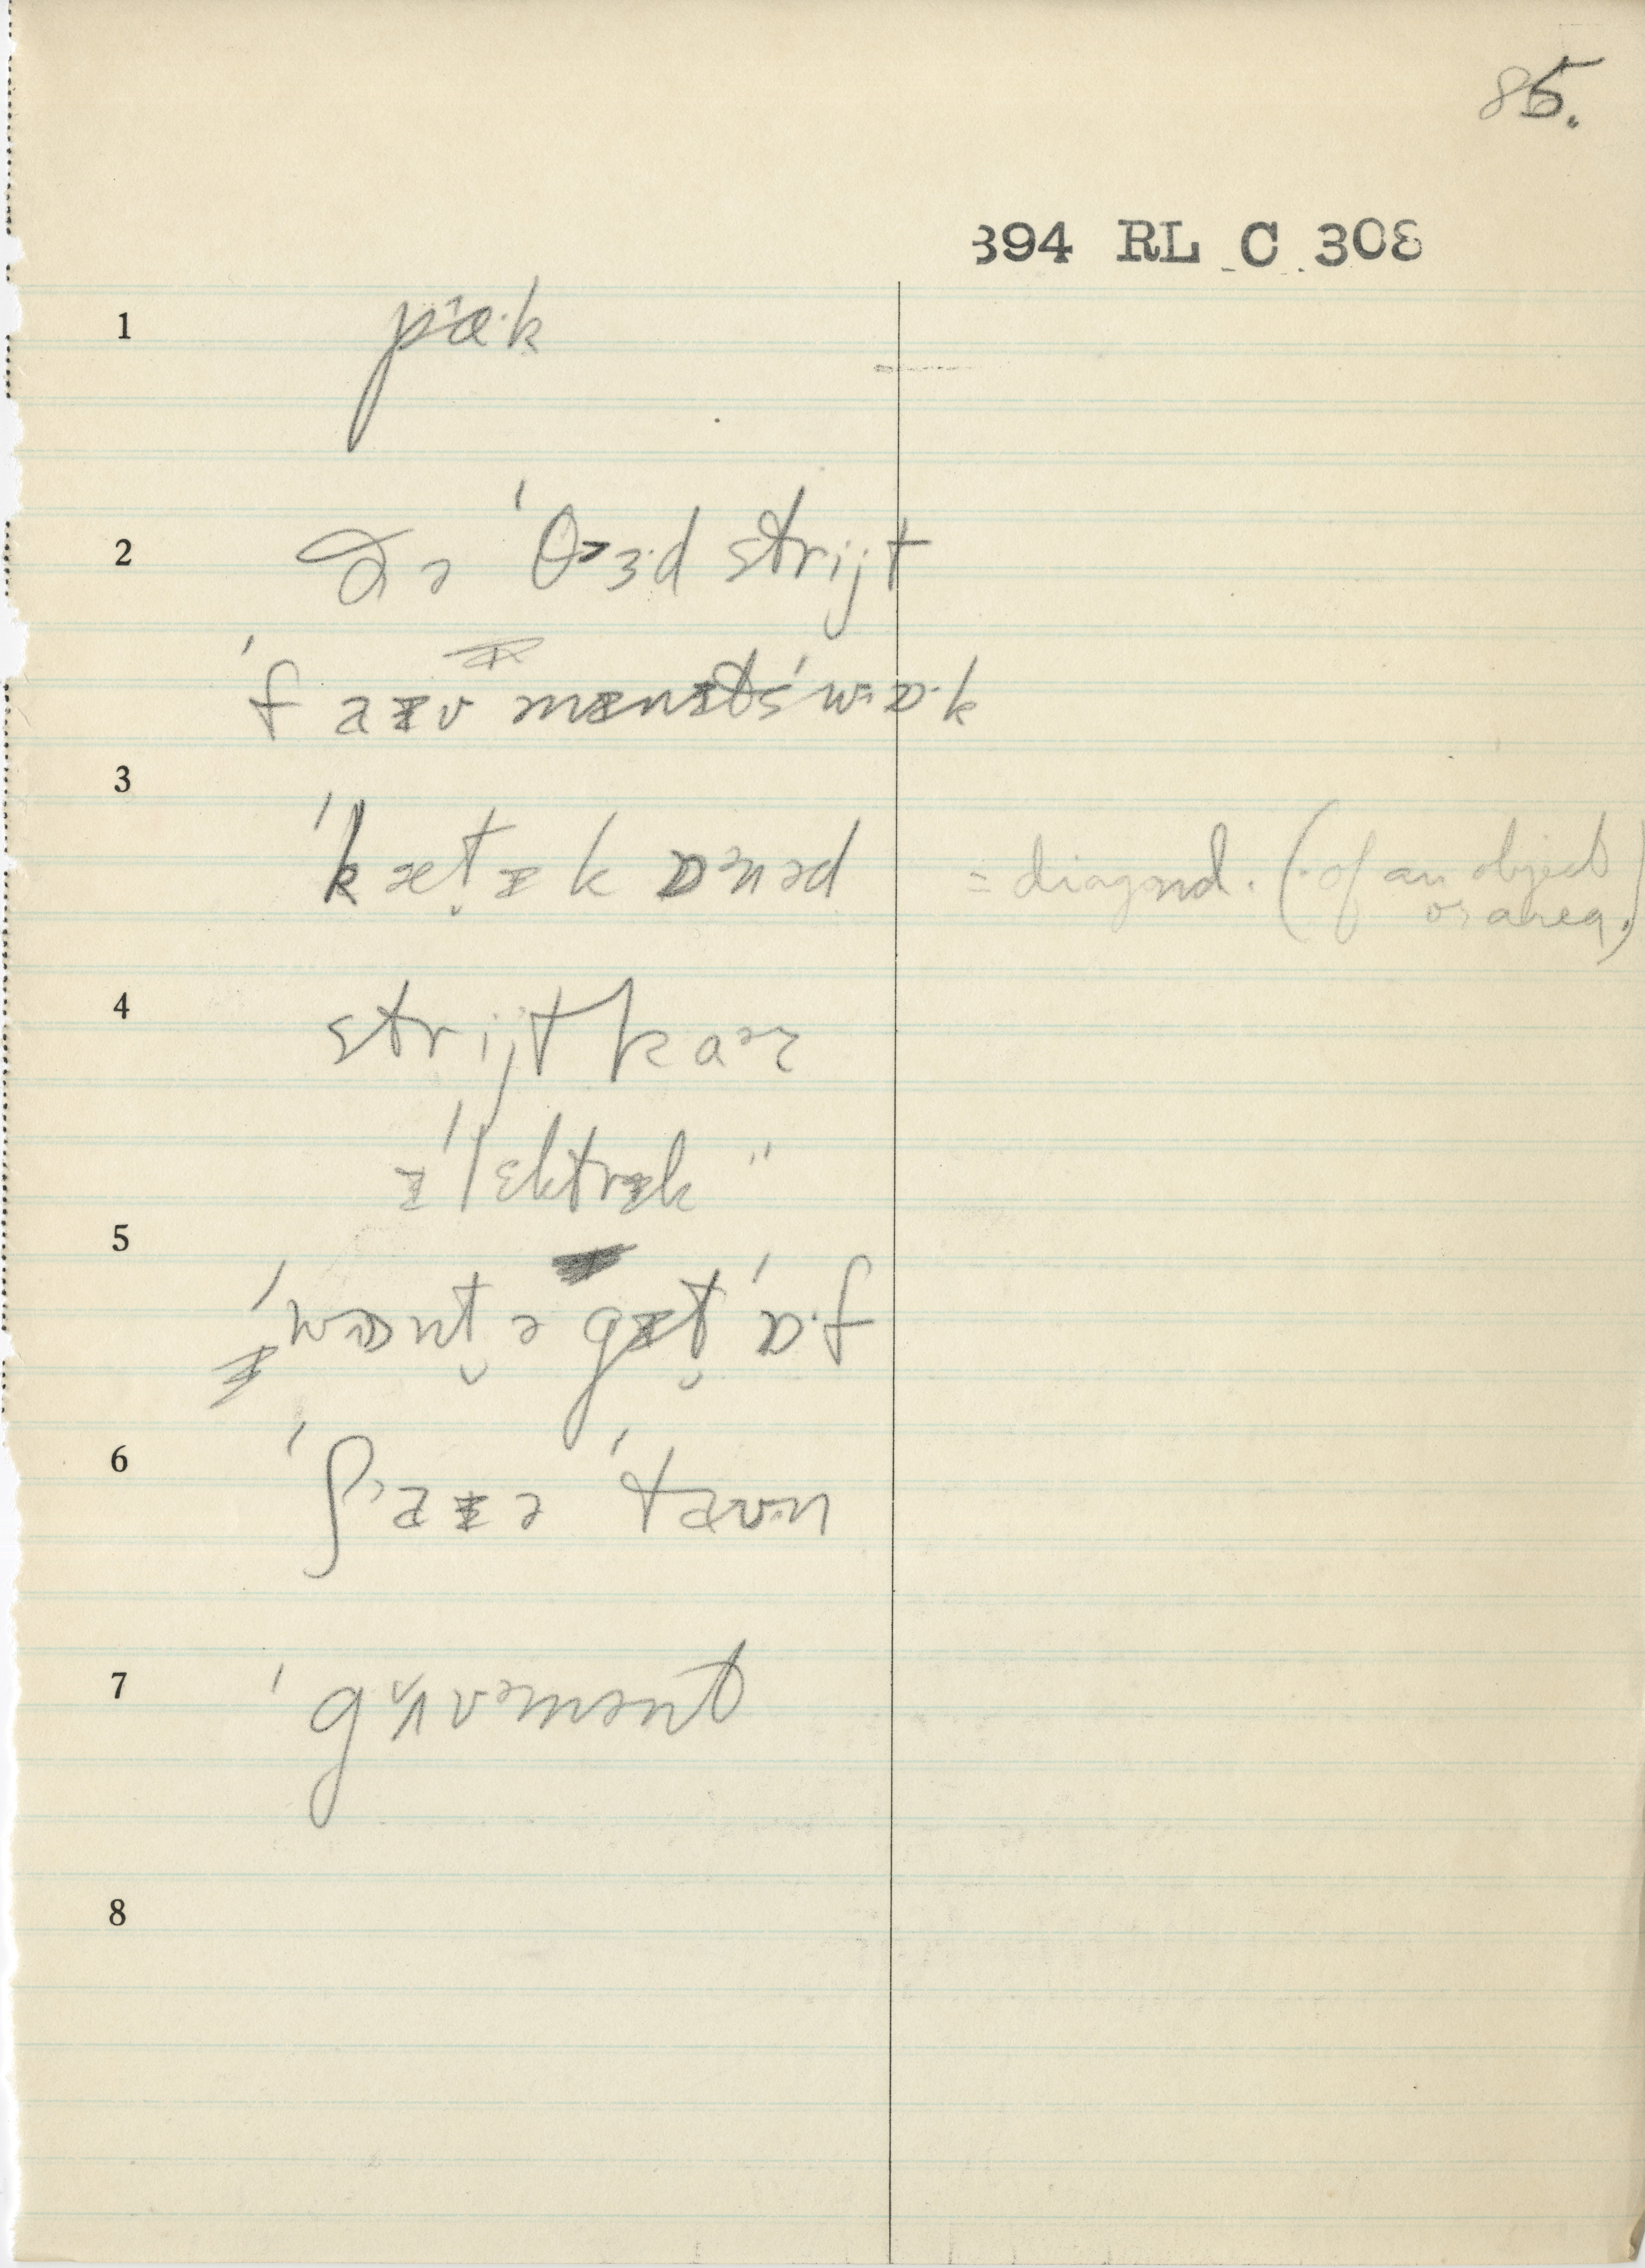 85.
394 RL C 308
1 pɑ˞·k
2 ðə ˈθɜ·d strijt
ˈfaɪv mɪnɪts ˈwɒ·k
3 ˈkæt̬ɪkɒnəd = diagonal. (of an object
or area.)
4 strijtkaɚ
ɪˈlɛktrɪk "
5 ˈwɒnt̬ ə gɪt̬ ˈɒ·f
6 ˈʃaɪə ˈtaʊn
7 ˈgʌvəmənt
8